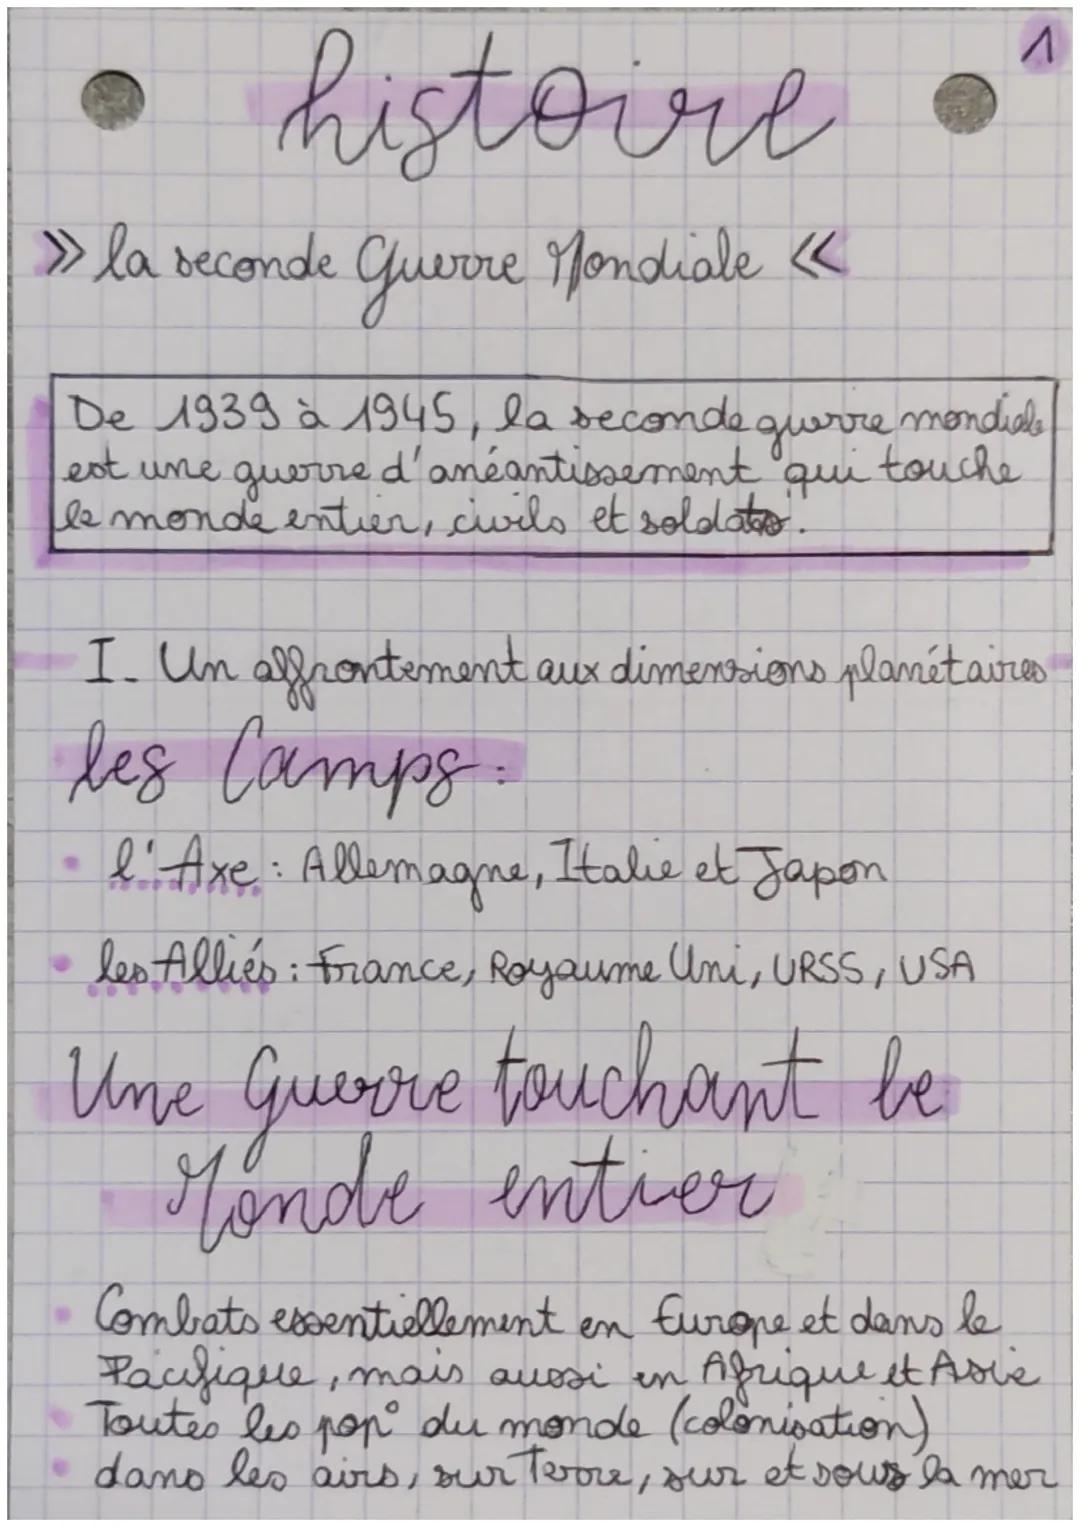 1
histoire
» la seconde Guerre Mondiale «
De 1939 à 1945, la seconde guerre mondiale
est une guerre d'anéantissement qui touche
le monde entier, civils et soldats.
I. Un affrontement aux dimensions planétaires
les Camps :
• l'Axe : Allemagne, Italie et Japon
• les Alliés : France, Royaume Uni, URSS, USA
Une Guerre touchant le
Monde entier
• Combats essentiellement en Europe et dans le
Pacifique, mais aussi en Afrique et Asie
• Toutes les pop° du monde (colonisation)
• dans les airs, sur Terre, sur et sous la mer